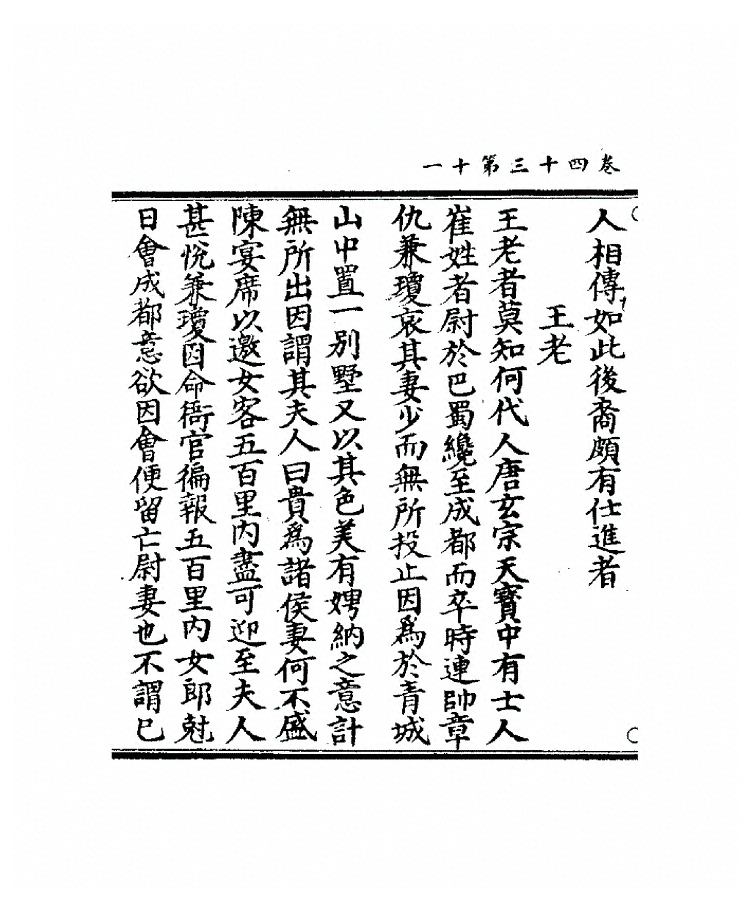 卷四十三第十一
人相傳如此後裔頗有仕進者
王老
王老者莫知何代人唐玄宗天寶中有士人
崔姓者尉於巴蜀纔至成都而卒時連帥章
仇兼瓊哀其妻少而無所投止因爲於青城
山中置一別墅又以其色美有娉納之意計
無所出因謂其夫人曰貴爲諸侯妻何不盛
陳宴席以邀女客五百里內盡可迎至夫人
甚悅兼瓊因命衙官徧報五百里內女郎尅
日會成都意欲因會便留亡尉妻也不謂已